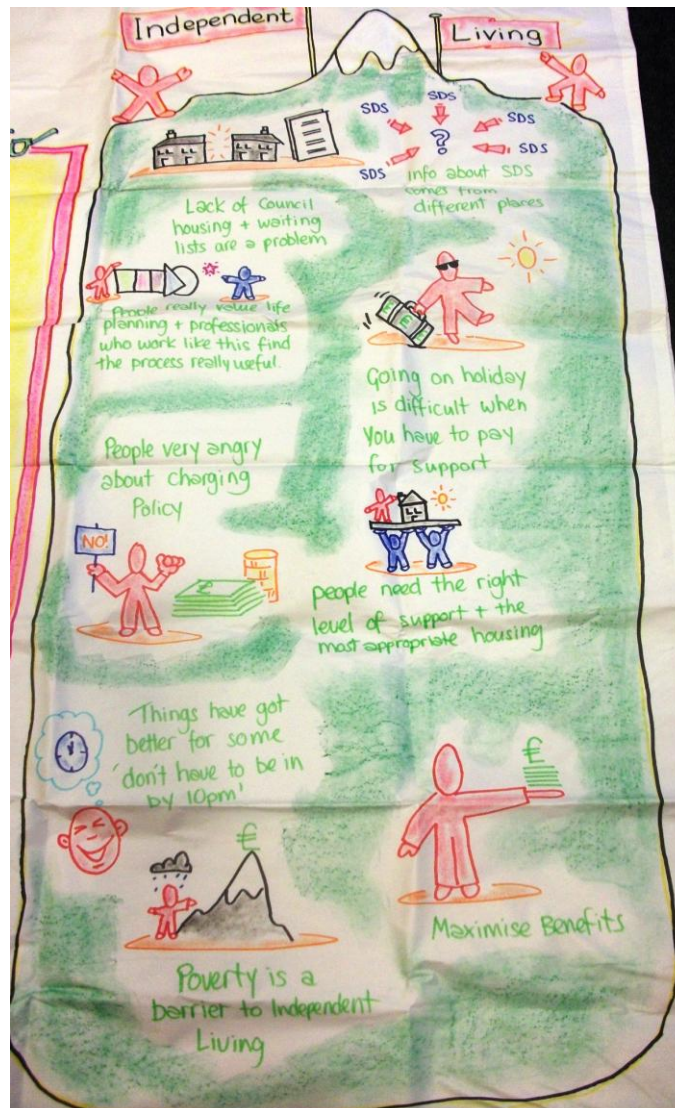 Independent
Living
SDS
SDS
SDS
SDS
SDS
?
Info about SDS
comes from
different places
Lack of Council
housing + waiting
lists are a problem
People really value life
planning + professionals
who work like this find
the process really useful.
£ £ £
Going on holiday
is difficult when
you have to pay
for support
People very angry
about charging
Policy
NO!
£
people need the right
level of support + the
most appropriate housing
Things have got
better for some
'don't have to be in
by 10pm'
£
Maximise Benefits
£
Poverty is a
barrier to Independent
Living